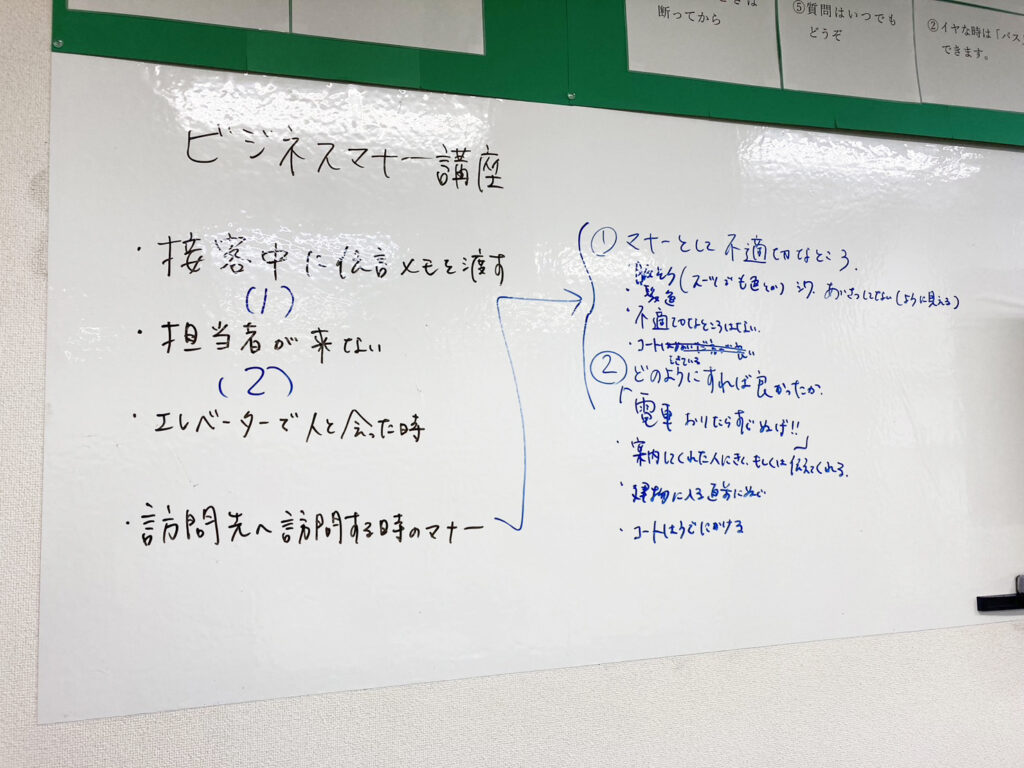 断ってから
⑤質問はいつでも
どうぞ
②イヤな時は「パス」
できます。
ビジネスマナー講座
・接客中に伝言メモを渡す
(1)
・担当者が来ない
(2)
・エレベーターで人と会った時
・訪問先へ訪問する時のマナー
① マナーとして不適切なところ.
(スーツでも色とか) シワ. あいさつしてない(ように見える)
髪色
・不適切なところはない.
・コート
きている
② どのようにすれば良かったか.
「電車おりたらすぐぬぐ!!」
・案内してくれた人にきく、もしくは伝えてくれる.
・建物に入る直前にぬぐ
・コートはうでにかける